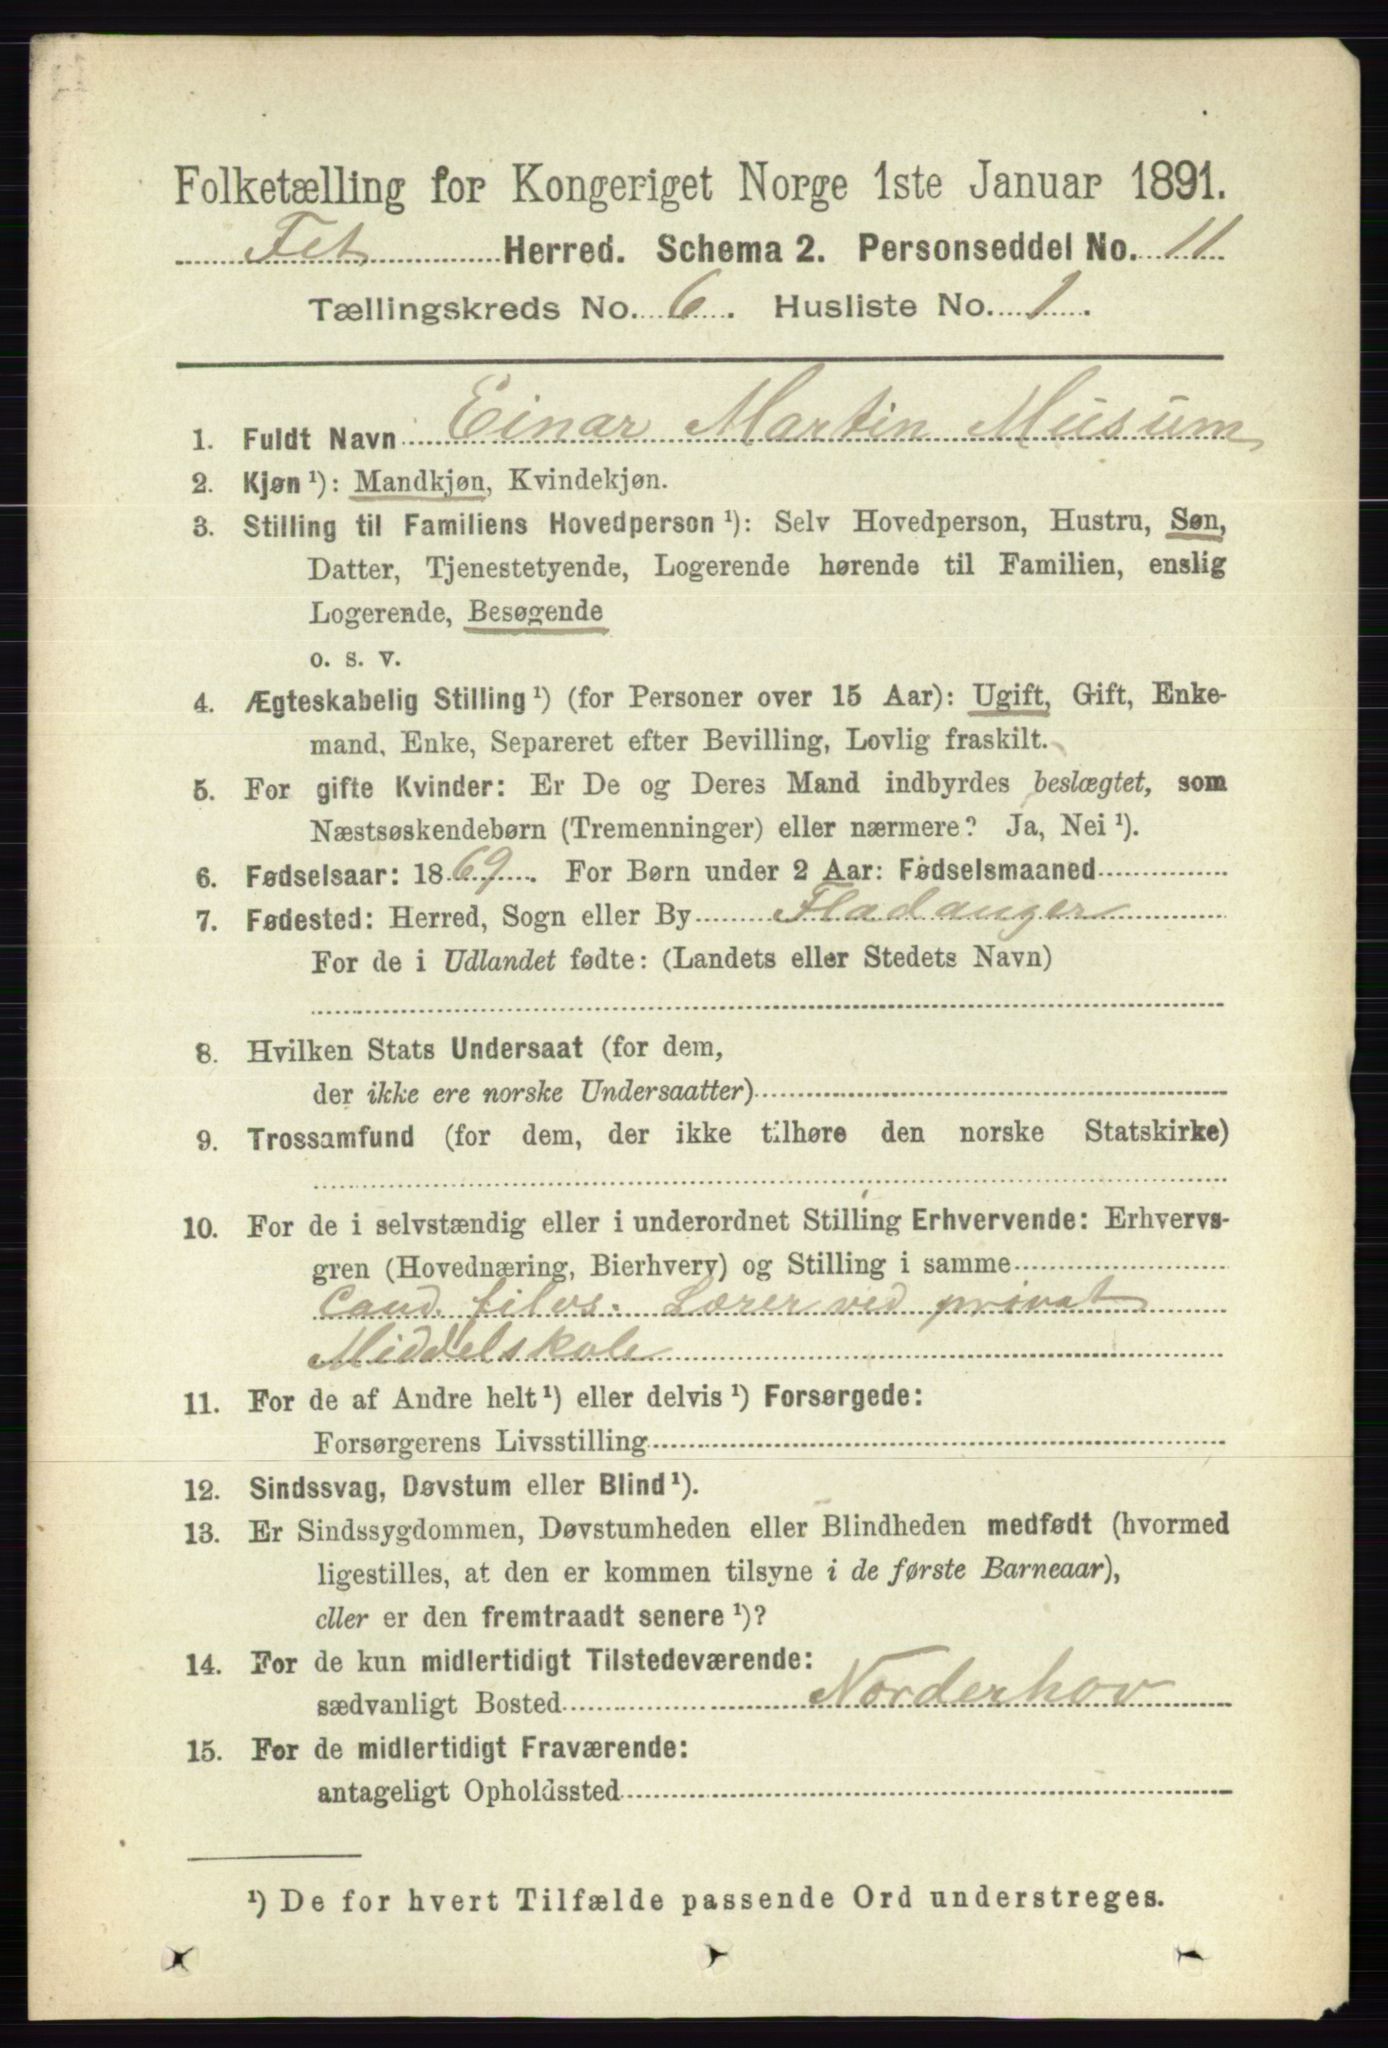 Folketælling for Kongeriget Norge 1ste Januar 1891.
Fet Herred. Schema 2. Personseddel No. 11
Tællingskreds No. 6. Husliste No. 1.
1. Fuldt Navn Einar Martin Musum
2. Kjøn ¹): Mandkjøn, Kvindekjøn.
3. Stilling til Familiens Hovedperson ¹): Selv Hovedperson, Hustru, Søn,
Datter, Tjenestetyende, Logerende hørende til Familien, enslig
Logerende, Besøgende
o. s. v.
4. Ægteskabelig Stilling ¹) (for Personer over 15 Aar): Ugift, Gift, Enke-
mand, Enke, Separeret efter Bevilling, Lovlig fraskilt.
5. For gifte Kvinder: Er De og Deres Mand indbyrdes beslægtet, som
Næstsøskendebørn (Tremenninger) eller nærmere? Ja, Nei ¹).
6. Fødselsaar: 1869. For Børn under 2 Aar: Fødselsmaaned
7. Fødested: Herred, Sogn eller By Fladanger
For de i Udlandet fødte: (Landets eller Stedets Navn)
8. Hvilken Stats Undersaat (for dem,
der ikke ere norske Undersaatter)
9. Trossamfund (for dem, der ikke tilhøre den norske Statskirke)
10. For de i selvstændig eller i underordnet Stilling Erhvervende: Erhvervs-
gren (Hovednæring, Bierhverv) og Stilling i samme
Cand. filos. Lærer ved privat
Middelskole
11. For de af Andre helt ¹) eller delvis ¹) Forsørgede:
Forsørgerens Livsstilling
12. Sindssvag, Døvstum eller Blind ¹).
13. Er Sindssygdommen, Døvstumheden eller Blindheden medfødt (hvormed
ligestilles, at den er kommen tilsyne i de første Barneaar),
eller er den fremtraadt senere ¹)?
14. For de kun midlertidigt Tilstedeværende:
sædvanligt Bosted Norderhov
15. For de midlertidigt Fraværende:
antageligt Opholdssted
¹) De for hvert Tilfælde passende Ord understreges.